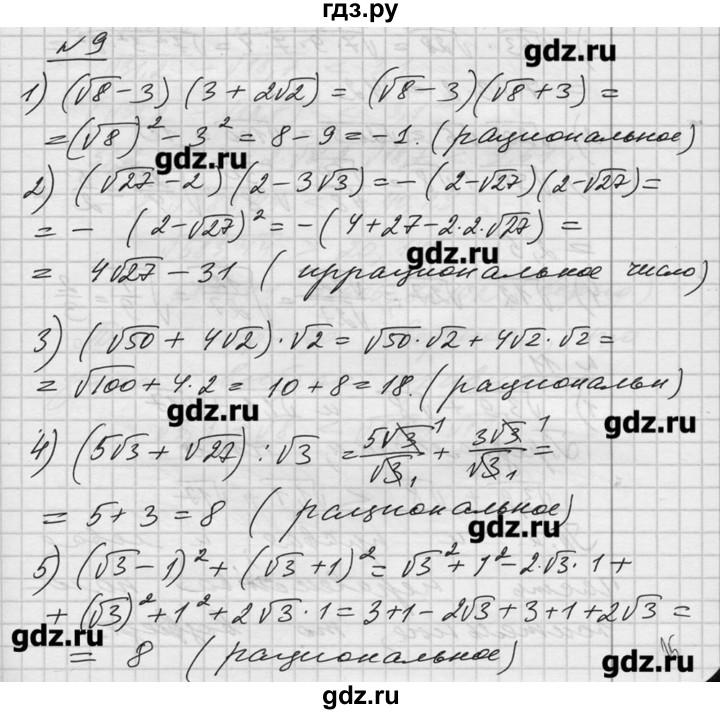 гдз.ру
№9
gdz.ru
1) (√8-3) (3+2√2) = (√8-3)(√8+3) =
=(√8)²-3² = 8-9=-1. (рациональное)
gdz.ru
2) (√27-2)(2-3√3)=-(2-√27)(2-√27)=
= - (2-√27)²=-(4+27-2·2·√27) =
gdz.ru
= 4√27-31 (иррациональное число)
3) (√50+4√2)·√2=√50·√2+4√2·√2=
=√100+4·2= 10+8=18. (рациональн)
gdz.ru
gdz.ru
4) (5√3+√27):√3 = 5√3/√3 + 3√3/√3 =
= 5+3=8 (рациональное)
gdz.ru
5) (√3-1)²+(√3+1)²=√3²+1²-2·√3·1+
+(√3)²+1²+2√3·1=3+1-2√3+3+1+2√3=
gdz.ru
= 8 (рациональное)
gdz.ru
gdz.ru